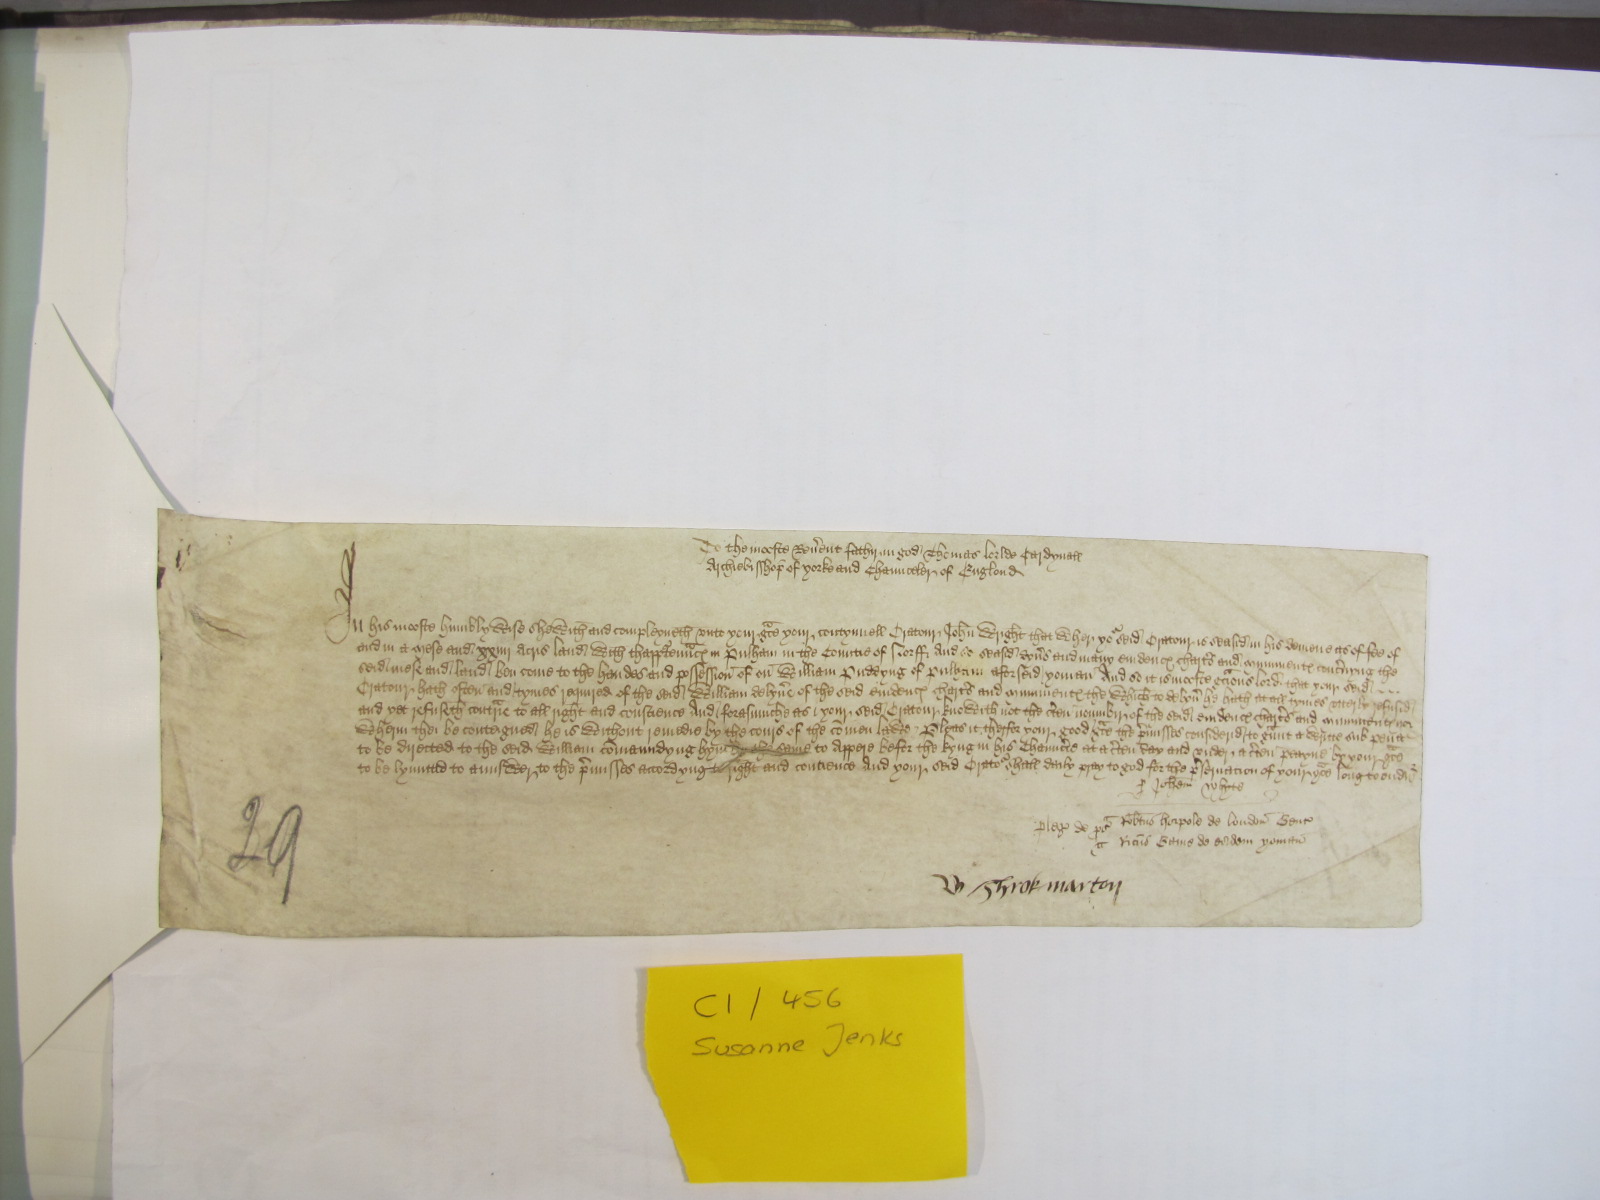 To the mooste Rev'ent fathir in god Thomas lorde Cardynall
Archiebisshop of yorke and Chaunceler of Englond
In his mooste humbly wise shewith and compleyneth unto your g'ce your contynuell Oratour John Wright that wher yo'r seid Oratour is seasid in his demene as of fee of
and in a mese and xxiiii acris land with thapp'ten'ncz in Pulham in the Countie of Norff. And so seasid dyv'se and many evidencz chart's and mynumentz conc'nyng the
seid mese and land ben come to the handes and possession of on William Puddyng of Pulham aforseid yoman And so it is mooste g'cious lord that your seid
Oratour hath often and tymes required of the seid William delyv'e of the seid evidencz chart's and mynumentz the which to delyv' he hath at all tymes utterly refused
and yet refuseth contr'ie to all right and conscience And forasmuche as your seid Oratour knowith not the c'ten noumbir of the seid evidencz chart's and mynumentz nor
wherin they be conteigned he is without remedie by the cours of the comen lawe Pleas it therfor your good g'ce the p'misses considerid to g'unt a writte sub pena
to be directed to the seid William Comaundyng hym by the same to appere befor the kyng in his Chaunc'ie at a c'ten day and under a c'ten peayne by your g'ce
to be lymitted to aunswer to the p'misses accordyng to right and concience And your seid Orato'r shall daily pray to god for the p'servacion of your g'ce long to endur
p' Joh'em Whyte
Pleg' de p's' Rob'tus horpole de london' Gent
Ric'us Game de eadem yoman
W Throkmarton
29
C1 / 456
Susanne Jenks